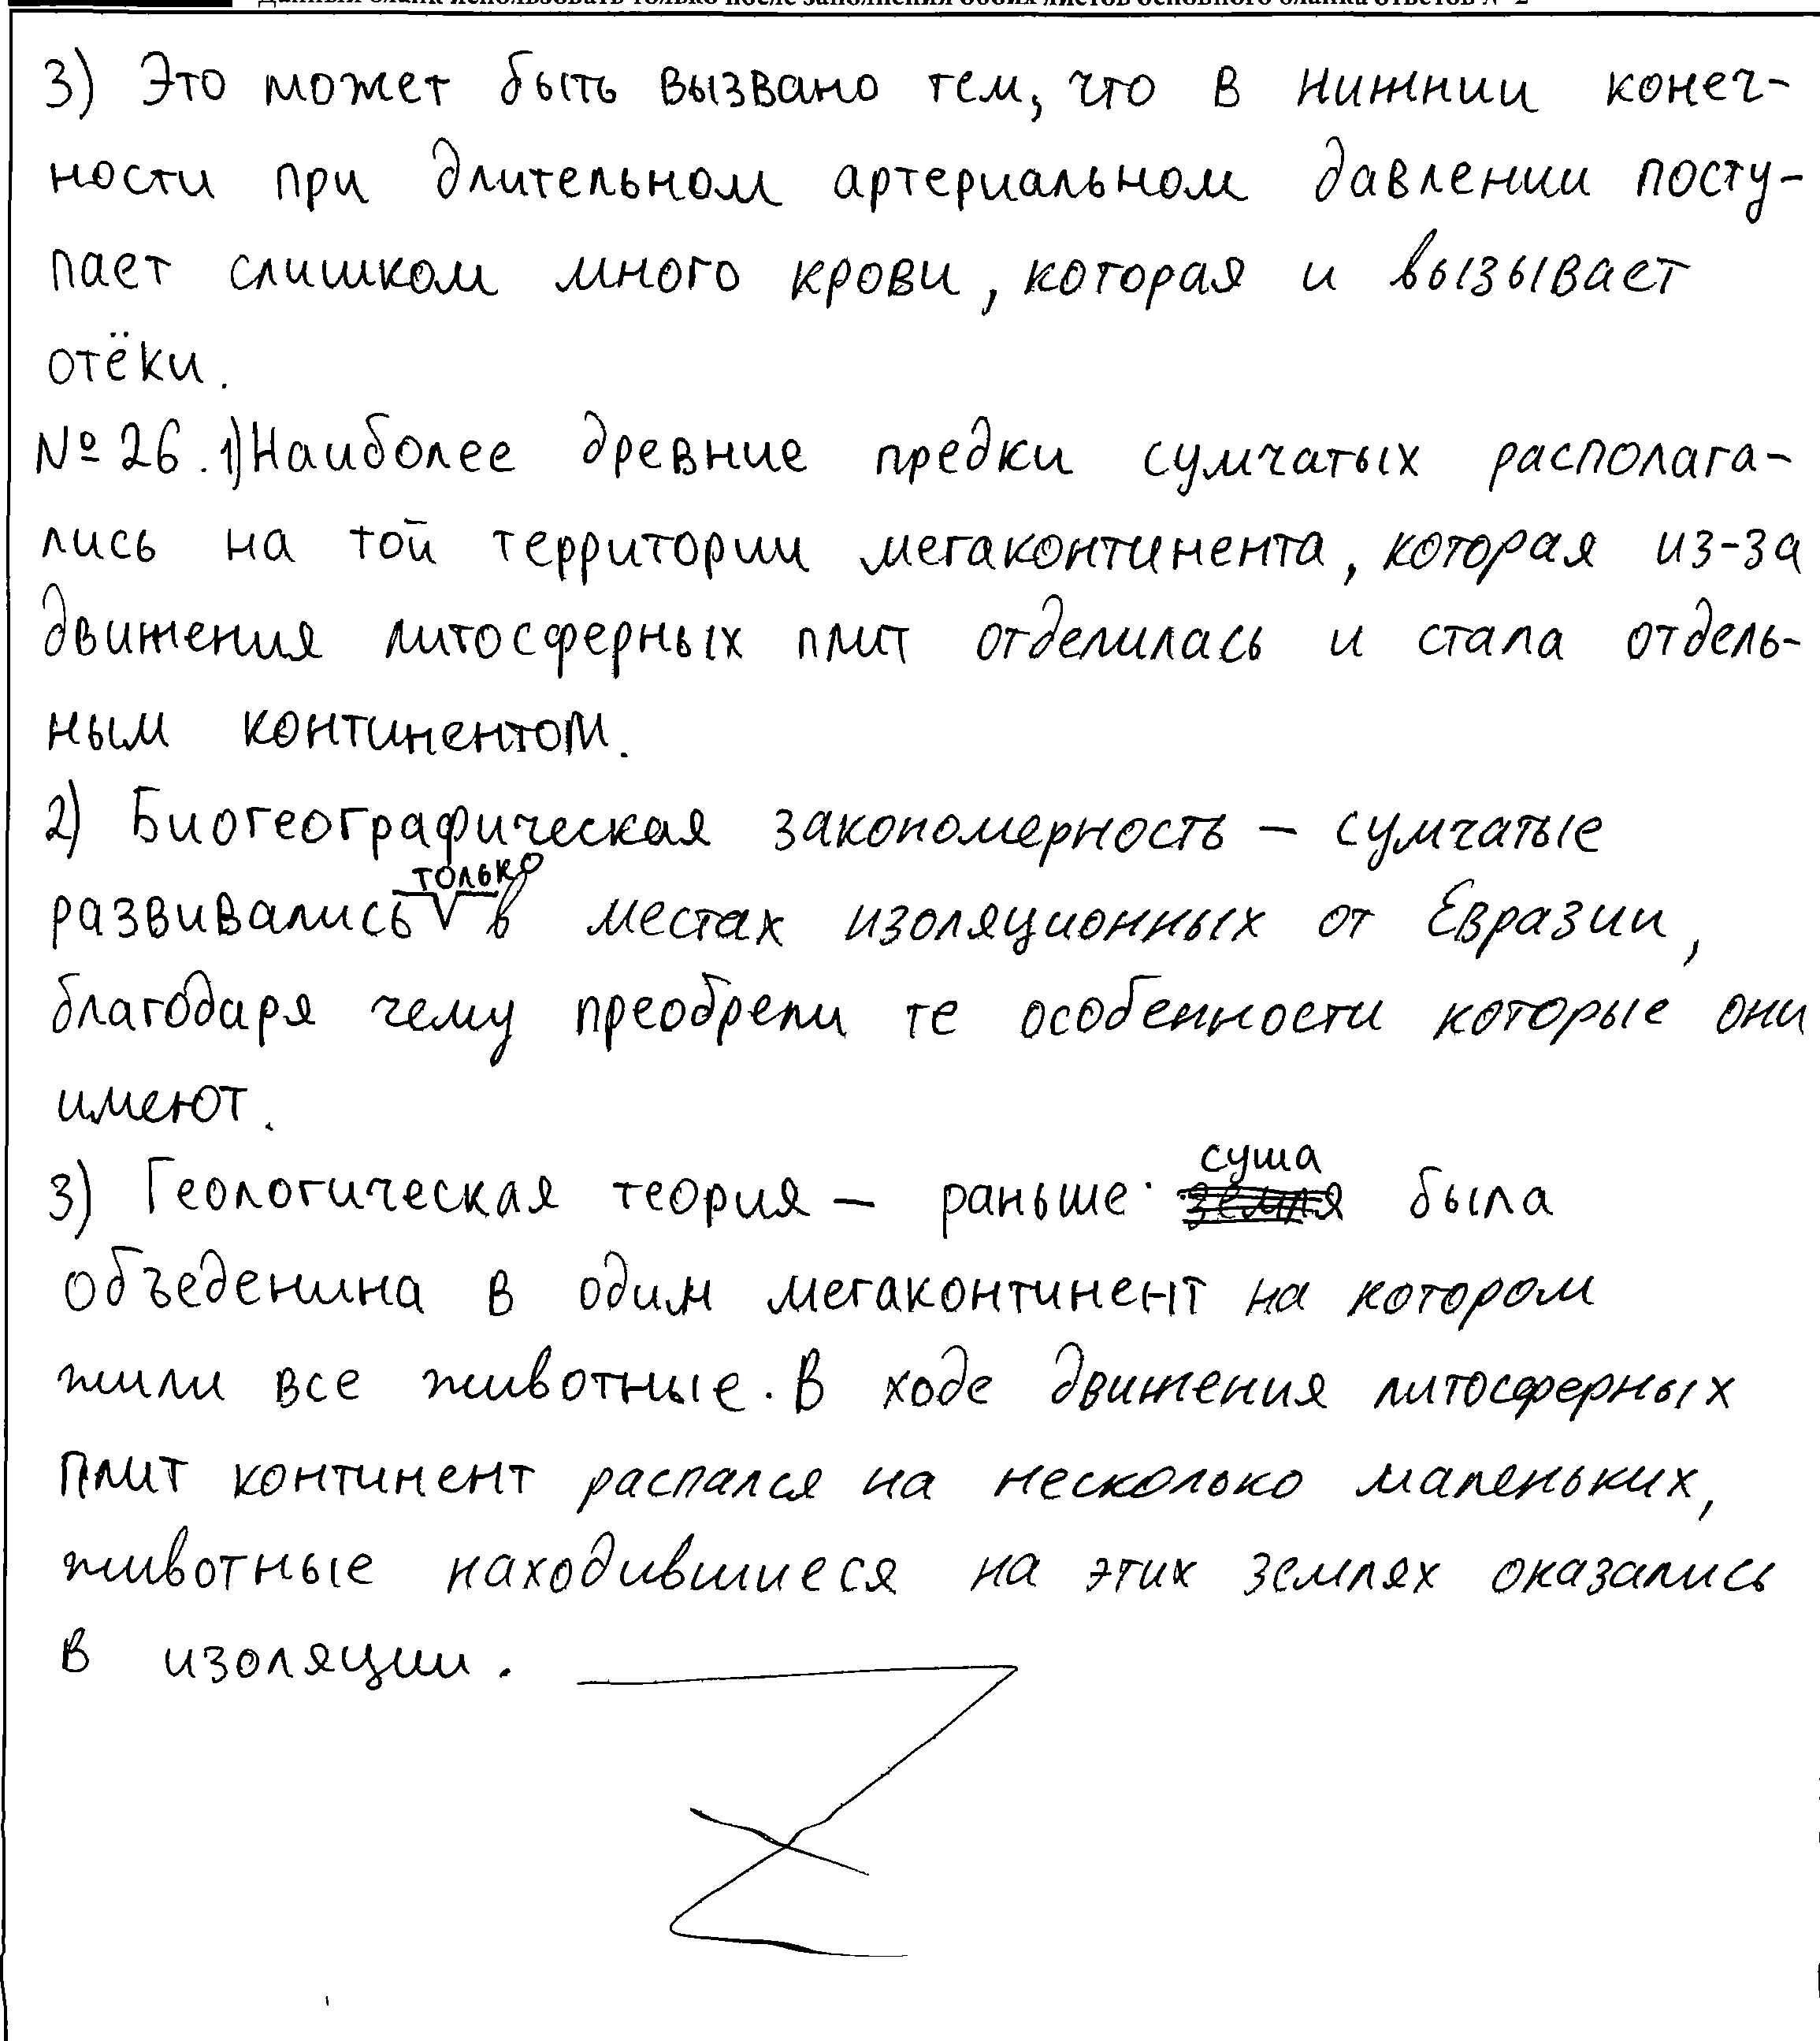 Данный бланк использовать только после заполнения обоих листов основного бланка ответов № 2
3) Это может быть вызвано тем, что в нижнии конеч-
ности при длительном артериальном давлении посту-
пает слишком много крови, которая и вызывает
отёки.
№ 26. 1) Наиболее древние предки сумчатых располага-
лись на той территории мегаконтинента, которая из-за
движения литосферных плит отделилась и стала отдель-
ным континентом.
2) Биогеографическая закономерность – сумчатые
развивались только в местах изоляционных от Евразии,
благодаря чему преобрели те особенности которые они
имеют.
3) Геологическая теория – раньше суша была
объеденина в один мегаконтинент на котором
жили все животные. В ходе движения литосферных
плит континент распался на несколько маленьких,
животные находившиеся на этих землях оказались
в изоляции.